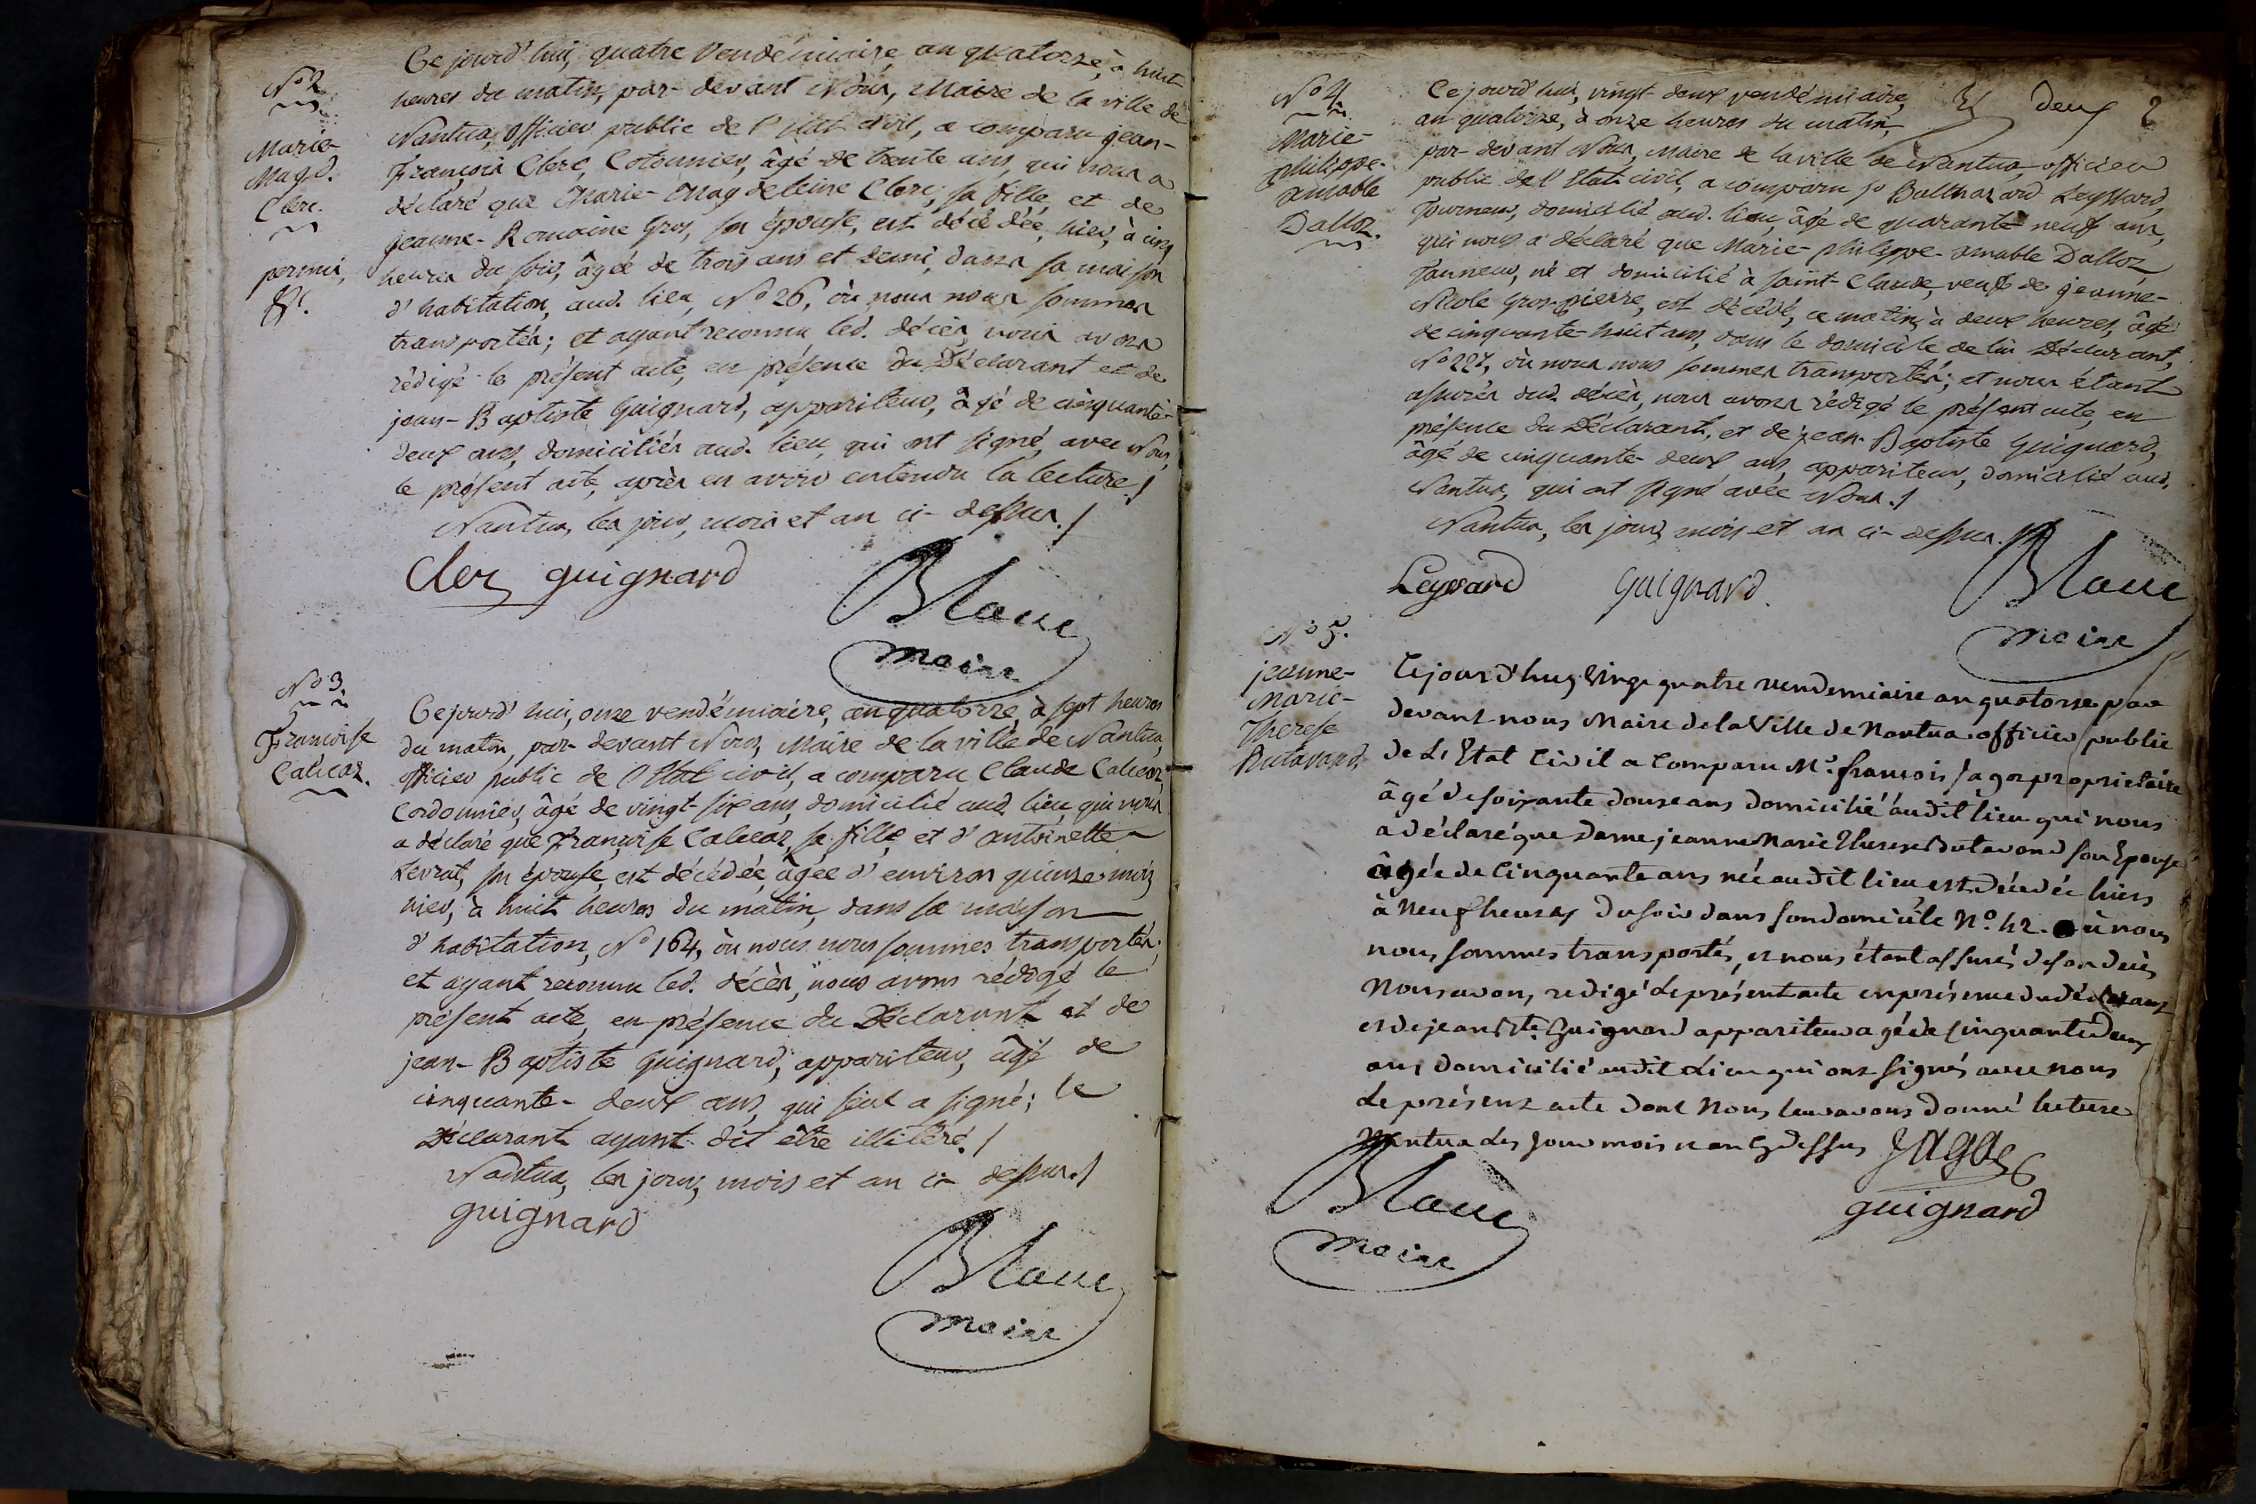 N.o 2
Marie-
Magd.
Clerc.
permis,
Ce jourd'hui, quatre Vendémiaire, an quatorze, à huit
heures du matin, par-devant Nous, Maire de la ville de
Nantua, officier public de l'Etat civil, a comparu jean-
françois Clerc, Cotonnier, âgé de trente ans, qui nous a
déclaré que Marie-Magdeleine Clerc, sa fille, et de
jeanne-Romaine Gros, son épouse, est décédée, hier, à cinq
heures du soir, âgée de trois ans et demi, dans sa maison
d'habitation, aud. lieu, N.o 26, où nous nous sommes
transportés; et ayant reconnu led. décès, nous avons
rédigé le présent acte, en présence du Déclarant et de
jean-Baptiste Guignard, appariteur, âgé de cinquante-
deux ans, domiciliés aud. lieu, qui ont signé, avec Nous,
le présent acte, après en avoir entendu la lecture./
Nantua, les jour, mois et an ci-dessus./
Clerc guignard
Blanc
maire
N.o 3
Françoise
Calicaz.
Ce jourd'hui, onze vendémiaire, an quatorze, à sept heures
du matin, par-devant Nous, Maire de la ville de Nantua,
officier public de l'Etat civil, a comparu Claude Calicaz,
Cordonnier, âgé de vingt-six ans, domicilié aud. lieu, qui nous
a déclaré que Françoise Calicaz, sa fille, et d'antoinette
Levrat, son épouse, est décédée, âgée d'environ quinze mois,
hier, à huit heures du matin, dans sa maison
d'habitation, N.o 164, où nous nous sommes transportés;
et ayant reconnu led. décès, nous avons rédigé le
présent acte, en présence du Déclarant et de
jean-Baptiste Guignard, appariteur, âgé de
cinquante-deux ans, qui seul a signé; le
Déclarant ayant dit être illitéré./
Nantua, les jour, mois et an ci-dessus./
guignard
Blanc
maire
deux 2
N.o 4.
Marie-
philippe-
amable
Dalloz.
Ce jourd'hui, vingt-deux vendémiaire,
an quatorze, à onze heures du matin,
par-devant Nous, Maire de la ville de Nantua, officier
public de l'Etat civil, a comparu Balthazard Leyssard,
Tourneur, domicilié aud. lieu, âgé de quarante-neuf ans,
qui nous a déclaré que Marie-philippe-amable Dalloz,
Tanneur, né et domicilié à saint-Claude, veuf de jeanne-
Nicole Gros-pierre, est décédé, ce matin, à deux heures, âgé
de cinquante-huit ans, dans le domicile de lui Déclarant,
N.o 227, où nous nous sommes transportés; et nous étant
assurés dud. décès, nous avons rédigé le présent acte, en
présence du Déclarant, et de jean-Baptiste Guignard,
âgé de cinquante-deux ans, appariteur, domicilié aud.
Nantua, qui ont signé avec Nous./
Nantua, les jour, mois et an ci-dessus./
Leyssard Guignard.
Blanc
maire
N.o 5.
jeanne-
Marie-
Thérèse
Butavand.
Cejourd'huy Vingt quatre vendemiaire an quatorze par
devant nous Maire de la Ville de Nantua officier public
de L'Etat Civil a Comparu Mr. françois Jagos propriétaire
âgé de soixante douze ans domicilié audit lieu qui nous
a déclaré que Dame jeanne Marie Therese Butavand son Epouse
âgée de Cinquante ans née audit lieu est décédée hiers
à Neuf heures du soir dans son domicile N.o 42. où nous
nous sommes transportés, et nous étant assurés de son decès
Nous avons redigé le présent acte en présence du déclarant
et de jean Bte. Guignard appariteur agé de Cinquante Deux
ans domicilié audit Lieu qui ont signés avec nous
Le présent acte dont Nous leur avons donné lecture
Nantua Les Jour mois et an Cy dessus
guignard
Blanc
maire